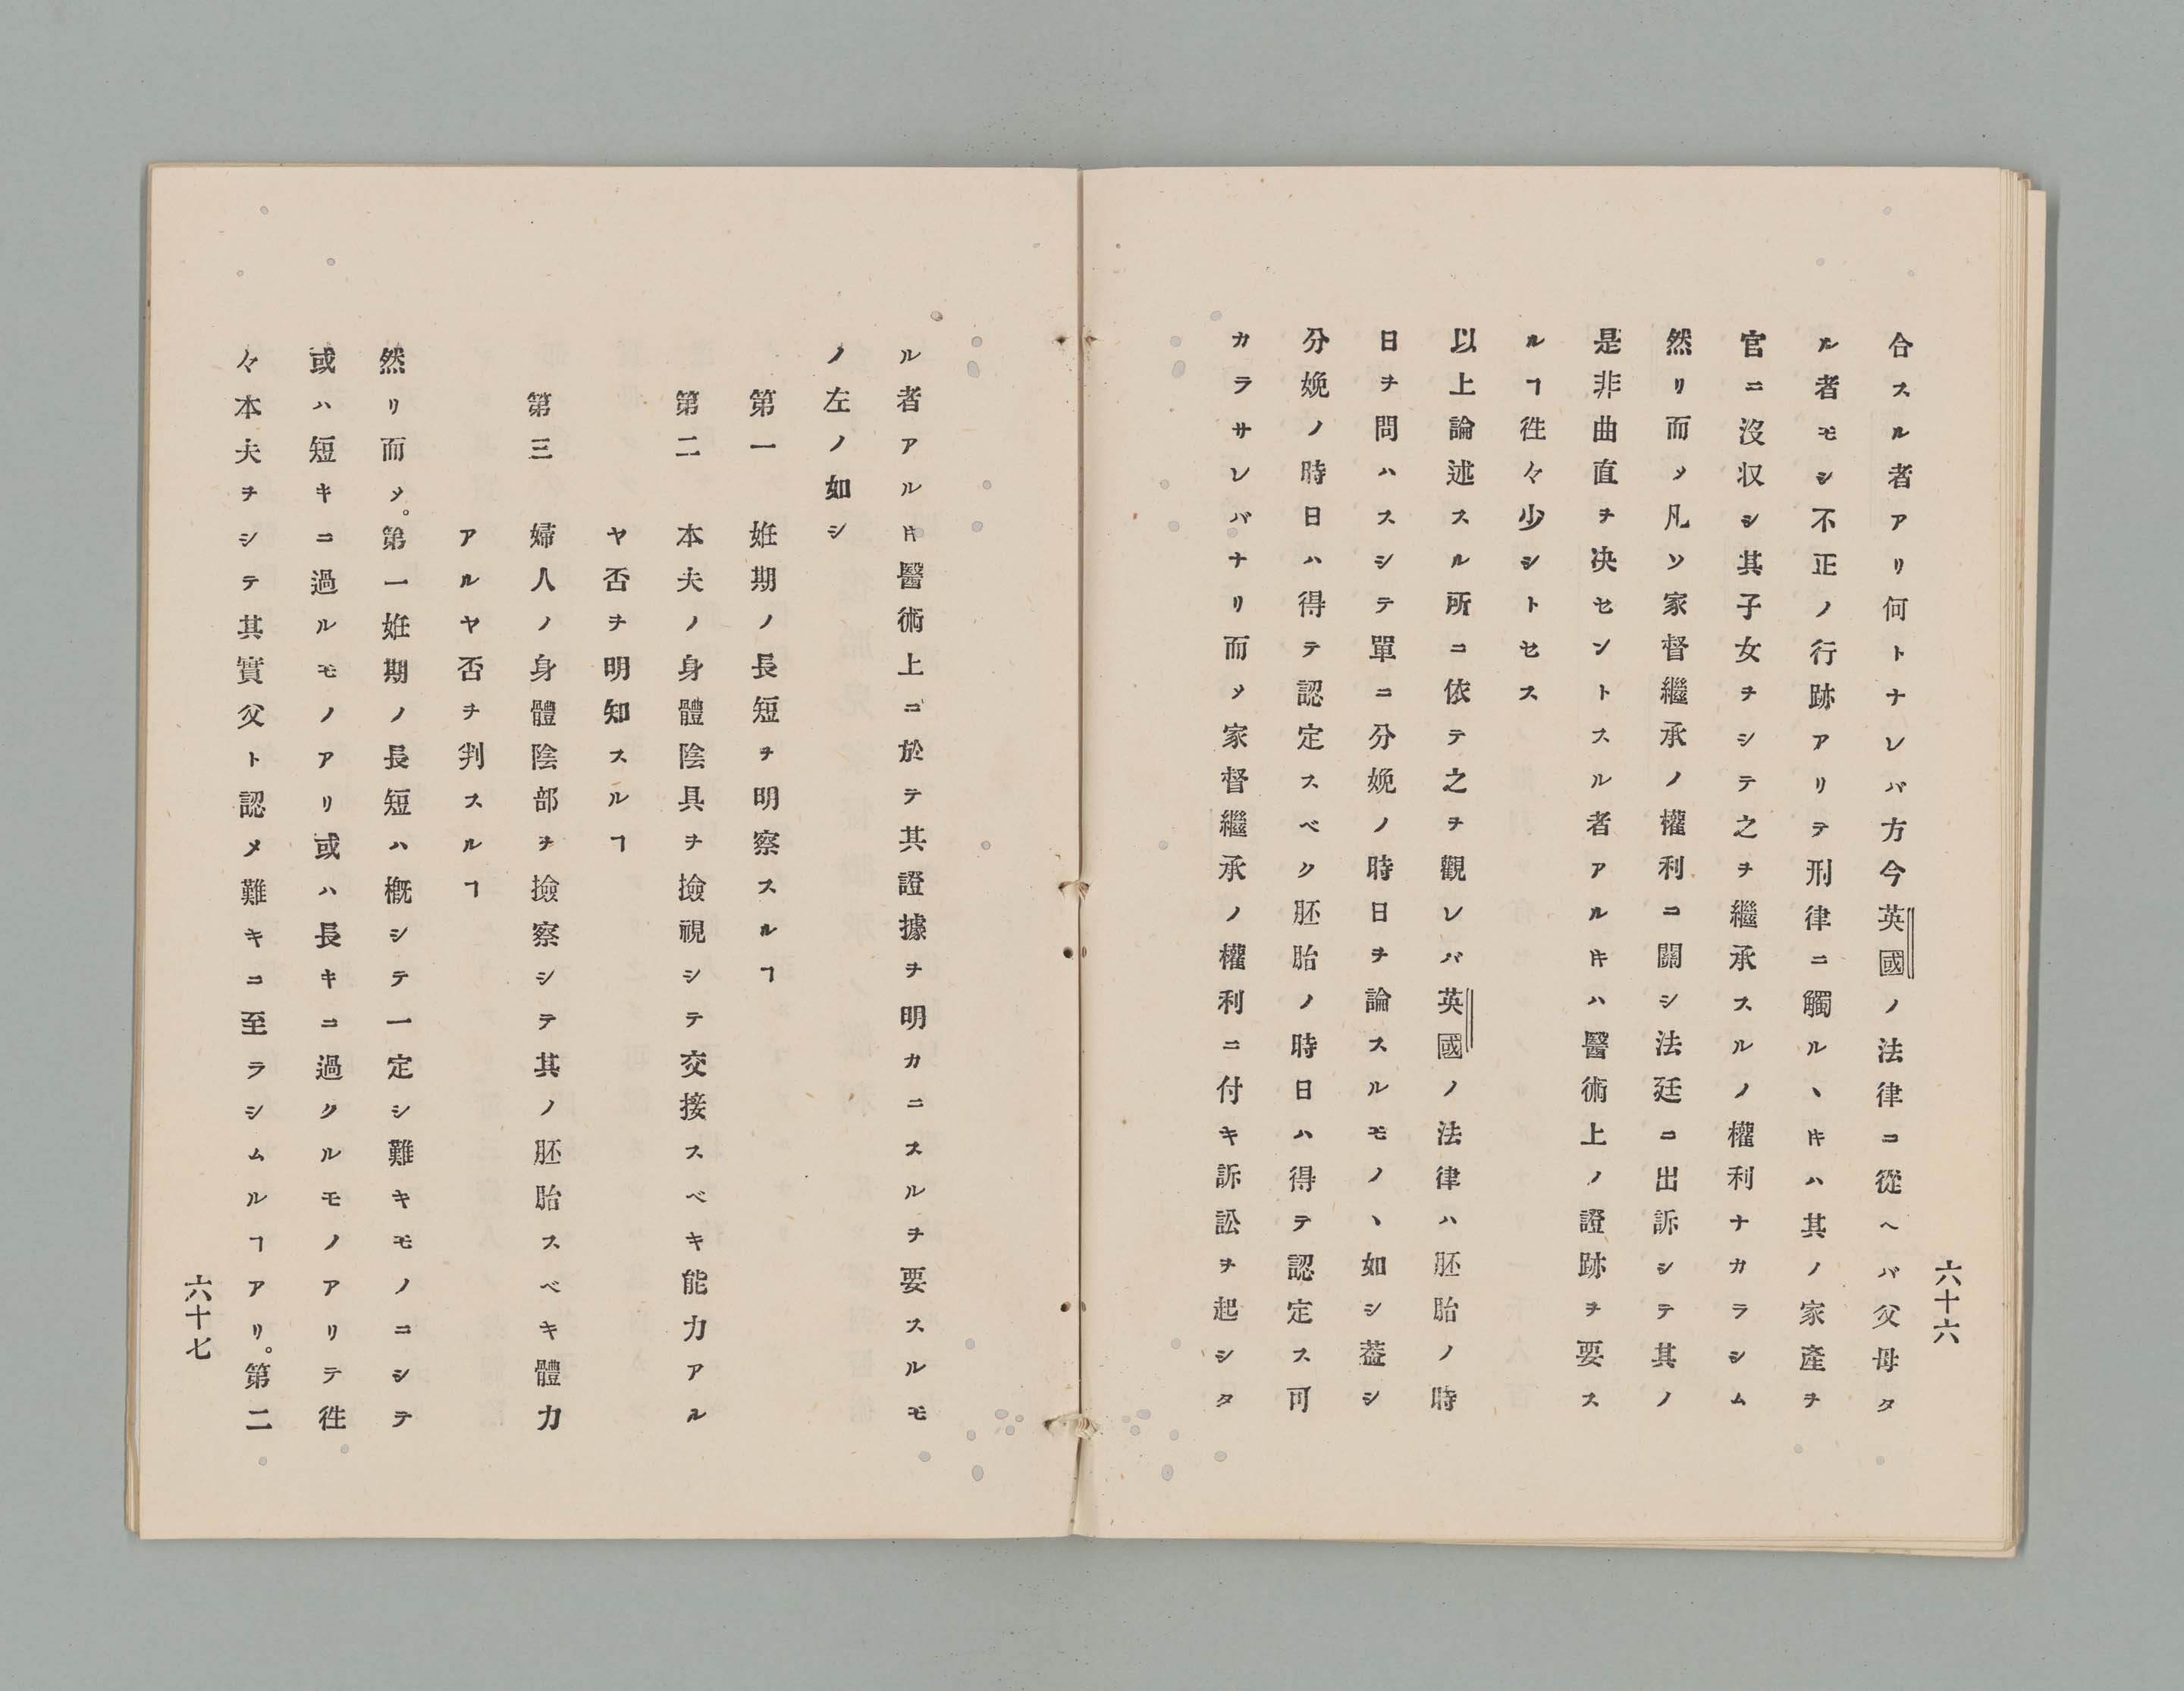 六十六
合スル者アリ何トナレバ方今英國ノ法律ニ從ヘバ父母タ
ル者モシ不正ノ行跡アリテ刑律ニ觸ルヽ𪜈ハ其ノ家產ヲ
官ニ沒収シ其子女ヲシテ之ヲ繼承スルノ權利ナカラシム
然リ而乄凡ソ家督繼承ノ權利ニ關シ法廷ニ出訴シテ其ノ
是非曲直ヲ决セントスル者アル𪜈ハ醫術上ノ證跡ヲ要ス
ルヿ徃々少シトセス
以上論述スル所ニ依テ之ヲ觀レバ英國ノ法律ハ胚胎ノ時
日ヲ問ハスシテ單ニ分娩ノ時日ヲ論スルモノヽ如シ葢シ
分娩ノ時日ハ得テ認定スベク胚胎ノ時日ハ得テ認定ス可
カラサレバナリ而乄家督繼承ノ權利ニ付キ訴訟ヲ起シタ
ル者アル𪜈醫術上ニ於テ其證據ヲ明カニスルヲ要スルモ
ノ左ノ如シ
第一 姙期ノ長短ヲ明察スルヿ
第二 本夫ノ身體陰具ヲ撿視シテ交接スベキ能力アル
ヤ否ヲ明知スルヿ
第三 婦人ノ身體陰部ヲ撿察シテ其ノ胚胎スベキ體力
アルヤ否ヲ判スルヿ
然リ而乄。第一姙期ノ長短ハ槪シテ一定シ難キモノニシテ
或ハ短キニ過ルモノアリ或ハ長キニ過クルモノアリテ徃
々本夫ヲシテ其實父ト認メ難キニ至ラシムルヿアリ。第二
六十七